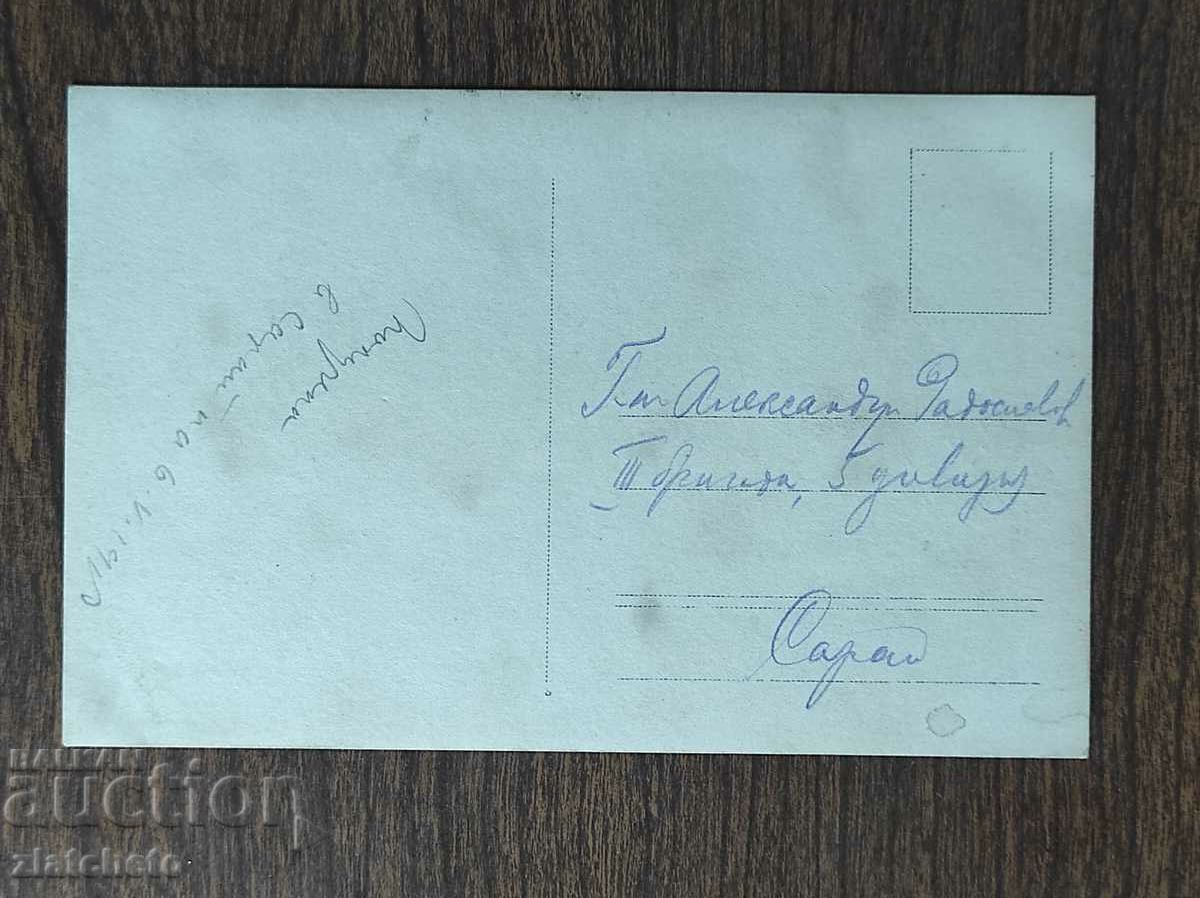 Получена
в Сарай
на 6.V.191
Г-нъ Александъръ Радославов
III бригада, 5 дивизия
Сарай
БАЛКАН
auction
zlatcheto